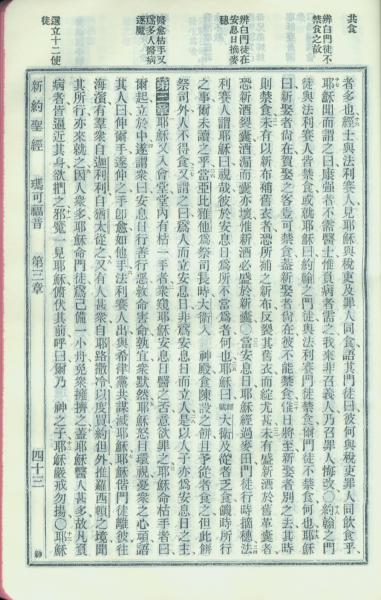 共食
辨白門徒不
禁食之故
辨白門徒在
安息日摘麥
穗
醫愈枯手又
爲多人醫病
逐魔
選立十二使
徒
者多也經士與法利賽人見耶穌與稅吏及罪人同食語其門徒曰彼何與稅吏罪人同飲食乎
耶穌聞而謂之曰康强者不需醫士惟負病者需之我來非召義人乃召罪人悔改〇約翰之門
徒與法利賽人皆禁食或就耶穌曰約翰之門徒與法利賽門徒禁食爾門徒不禁食何也耶穌
曰新娶者尚在賀娶之客豈可禁食蓋新娶者尚在彼不能禁食惟日將至新娶者別之去其時
則禁食未有以新布補舊衣者恐所補之新布反裂其舊衣而綻尤甚未有盛新酒於舊革囊者
恐新酒裂囊酒漏而囊亦壞惟新酒必盛於新囊〇當安息日耶穌經過麥田門徒行時摘穗法
利賽人謂耶穌曰視哉彼於安息日爲所不當爲者何也耶穌曰經載大衛及從者乏食饑時所行
之事爾未讀之乎當亞比雅他爲祭司長時大衛入 神殿食陳設之餅且予從者食之但此餅
祭司外人不得食又謂之曰爲人而立安息日非爲安息日而立人是以人子亦爲安息日之主
第三章耶穌又入會堂堂內有枯一手者衆窺耶穌安息日醫之否意欲罪之耶穌命枯手者曰
爾起立於中遂謂衆曰安息日行善行惡救命害命孰宜衆默然耶穌怒目環視憂衆之心頑語
其人曰伸爾手遂伸之手卽愈如他手法利賽人出與希律黨共謀滅耶穌耶穌偕門徒離彼往
海濱有羣衆自迦利利自猶太從之又有人甚衆自耶路撒冷以度買約但外推羅西頓之境聞
其所行亦來就之因人衆多耶穌命門徒爲己備一小舟免衆擁擠之蓋耶穌醫人甚多故凡負
病者皆逼近其身欲捫之邪鬼一見耶穌俯伏其前呼曰爾乃 神之子耶穌嚴戒勿揚〇耶穌
新約聖經 瑪可福音 第三章 四十三